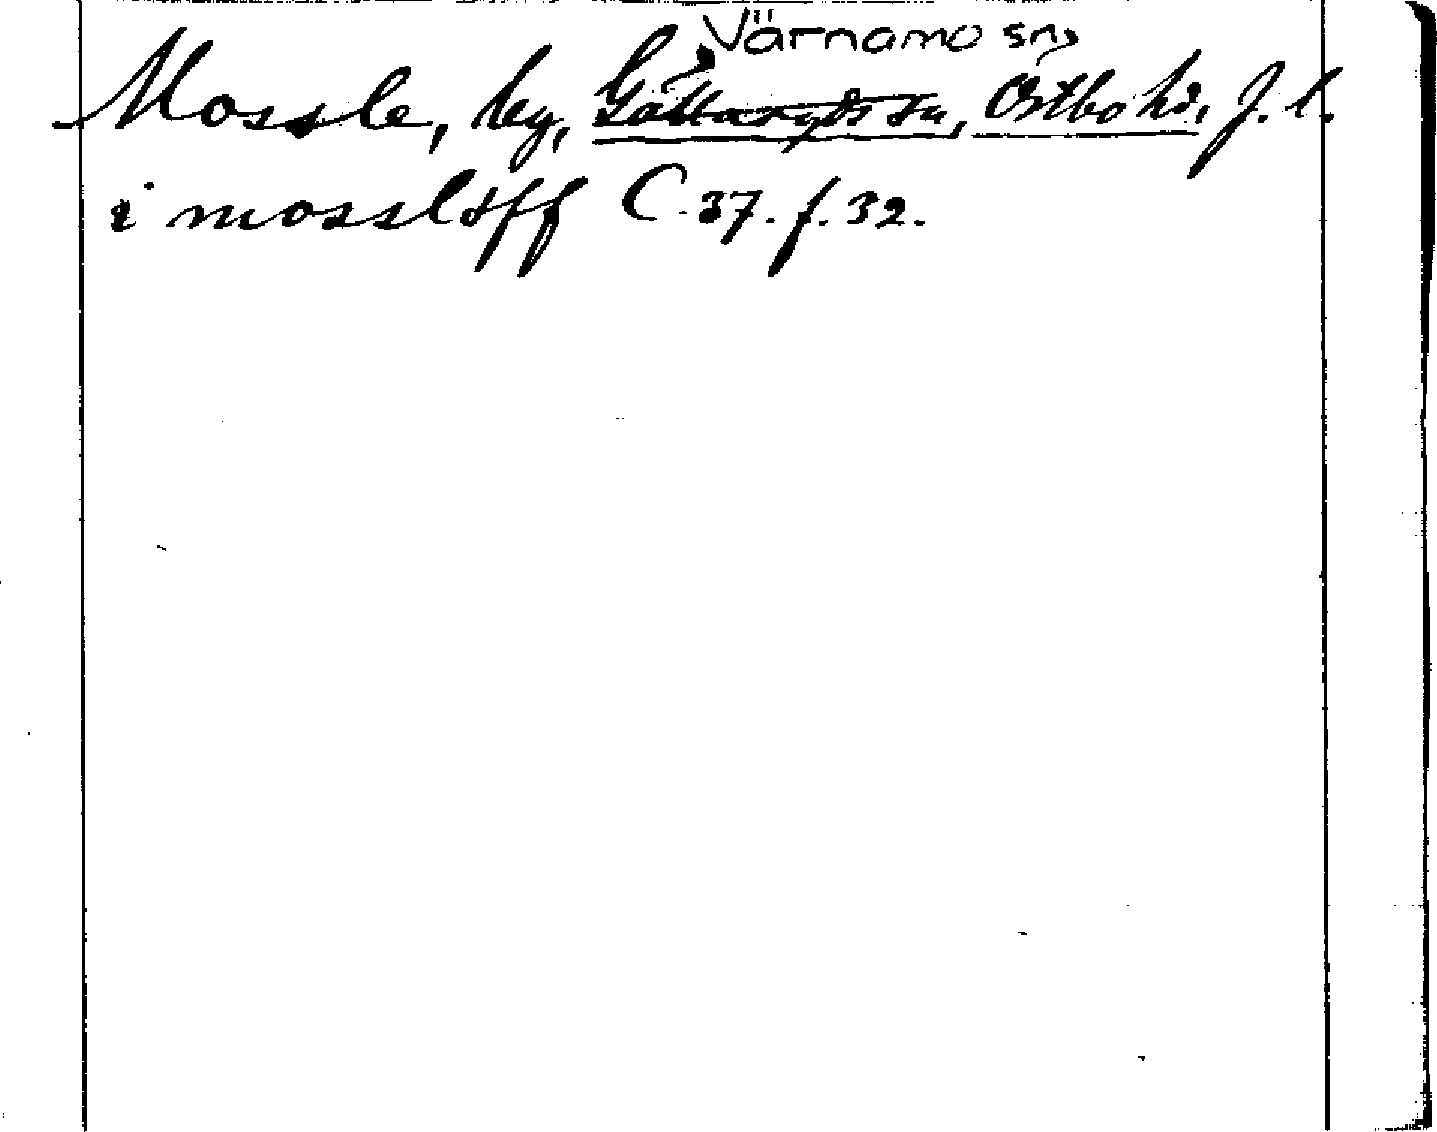 Värnamo sn,
Mossle, by, Gällaryds sn, Östbo hd, J. l.
i mosslöff C 37. f. 32.